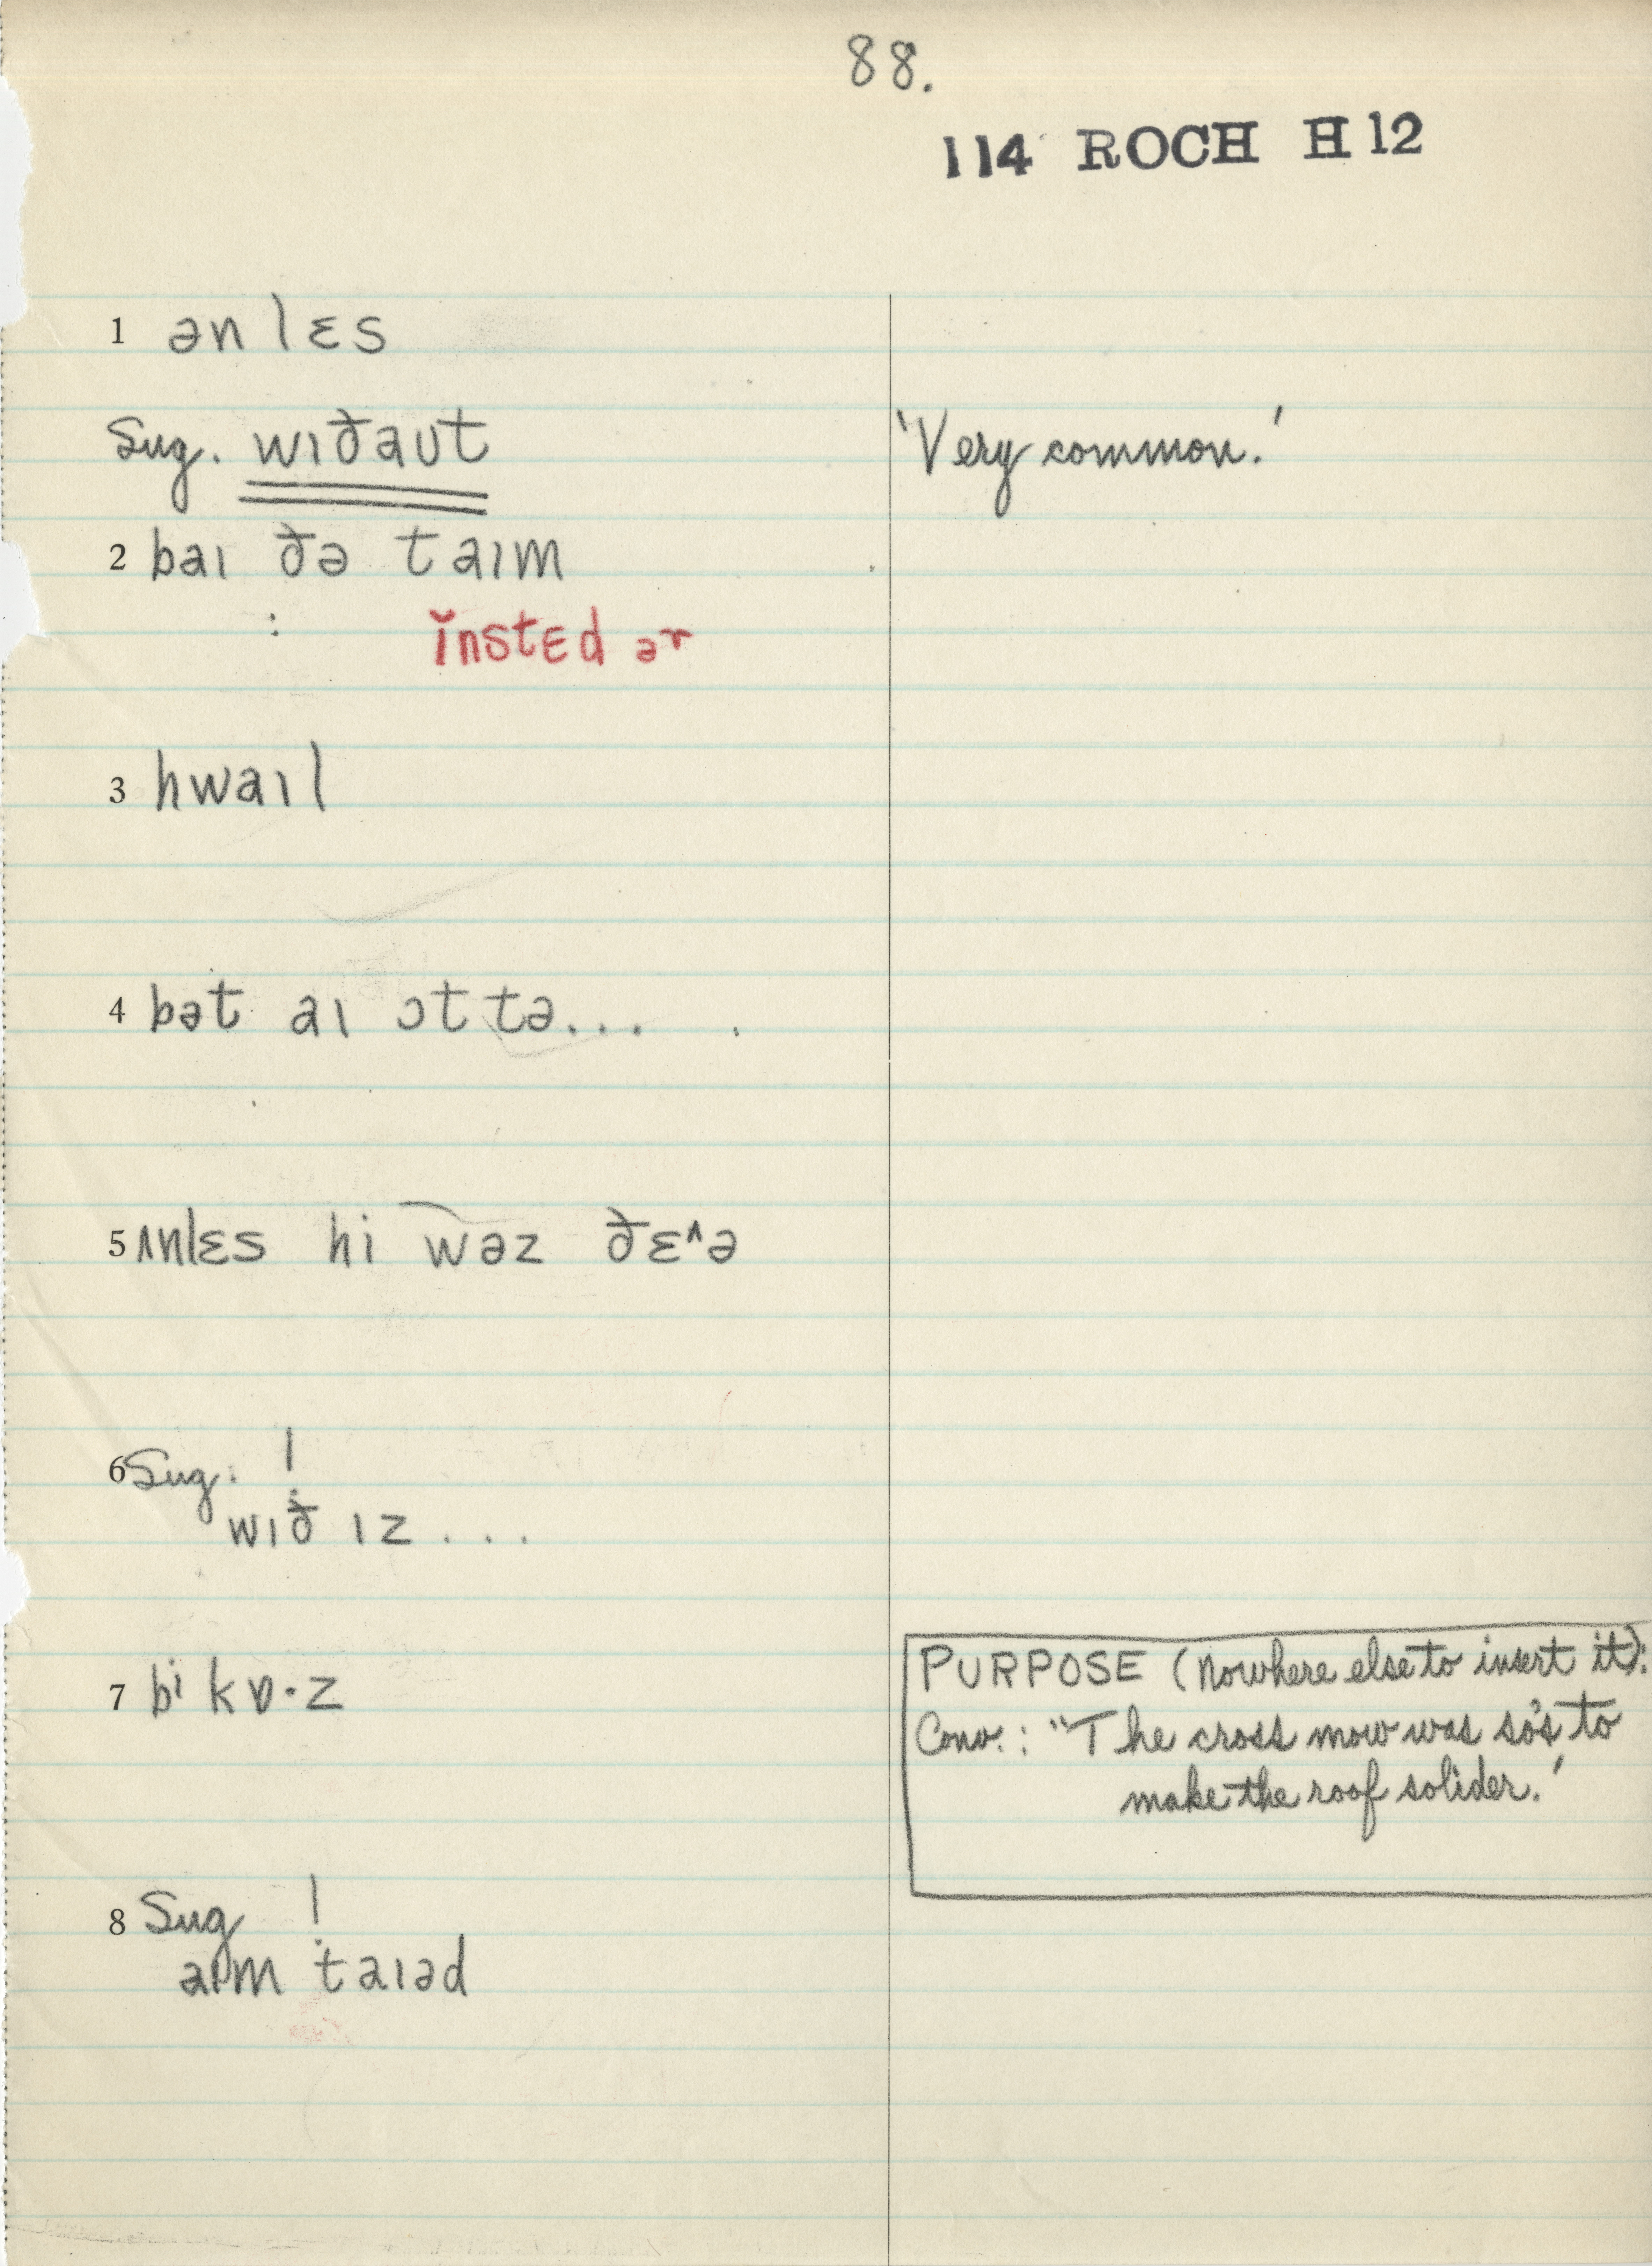 88.
114 ROCH H12
1 ənlɛs
Sug. wɪðaʊt 'Very common.'
2 baɪ ðə taɪm
: ĭnstɛd ər
3 hwaɪl
4 bət aɪ ɔt tə...
5 ʌnlɛs hi wəz ðɛ^ə
6 Sug. !
wɪð ɪz ...
7 bⁱkɒ·z
PURPOSE (Nowhere else to insert it):
Conv.: "The cross mow was so's to
make the roof solider.'
8 Sug !
aɪm taɪəd